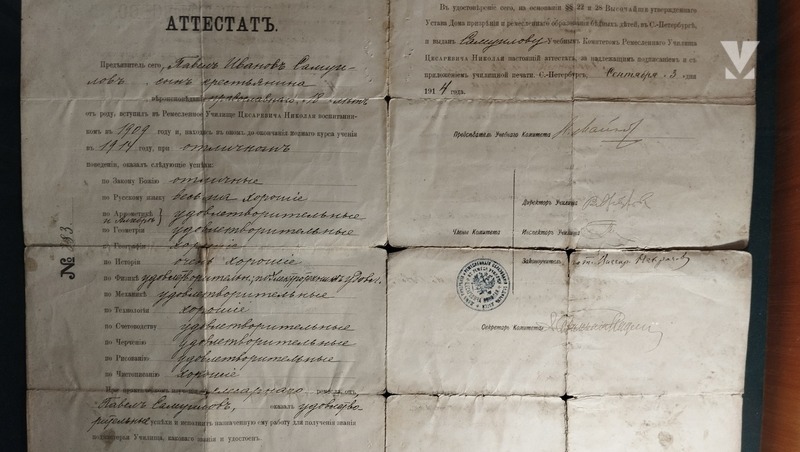 АТТЕСТАТЪ.
Предъявитель сего, Павелъ Ивановъ Самуи-
ловъ сынъ крестьянина
вѣроисповѣданія православнаго, 12 лѣтъ
отъ роду, вступилъ въ Ремесленное Училище Цесаревича Николая воспитанни-
комъ въ 1909 году и, находясь въ ономъ до окончанія полнаго курса ученія
въ 1914 году, при отличномъ
поведеніи, оказалъ слѣдующіе успѣхи:
по Закону Божію отличные
по Русскому языку весьма хорошіе
по Арѳметикѣ и Алгебрѣ удовлетворительные
по Геометріи удовлетворительные
по Географіи хорошіе
по Исторіи очень хорошіе
по Физикѣ удовлетворительн; по Электротехникѣ удовл.
по Механикѣ удовлетворительные
по Технологіи хорошіе
по Счетоводству удовлетворительные
по Черченію удовлетворительные
по Рисованію удовлетворительные
по Чистописанію хорошіе
При слесарнаго
Павелъ Самуиловъ, оказалъ удовлетво-
рительные успѣхи и исполнилъ назначенную ему работу для полученія званія
подмастерья Училища, каковаго званія и удостоенъ.
№ 283
Въ удостовѣреніе сего, на основаніи §§ 22 и 28 Высочайше утвержденнаго
Устава Дома призрѣнія и ремесленнаго образованія бѣдныхъ дѣтей, въ С.-Петербургѣ,
и выданъ Самуилову Учебнымъ Комитетомъ Ремесленнаго Училища
Цесаревича Николая настоящій аттестатъ, за надлежащимъ подписаніемъ и съ
приложеніемъ училищной печати. С.-Петербургъ, Сентября 3 дня
1914 года.
Предсѣдатель Учебнаго Комитета
Директоръ Училища
Члены Комитета
Инспекторъ Училища
Законоучитель
Секретарь Комитета